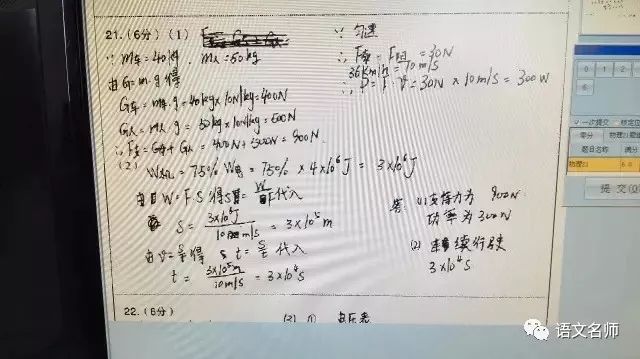 21.(6分)(1)
∵ m车=40kg, m人=50kg
由G=m·g得
G车=m车·g=40kg×10N/kg=400N
G人=m人·g=50kg×10N/kg=500N
∴F支=G车+G人=400N+500N=900N.
(2)
W机=75% W电=75%×4×10⁶J=3×10⁶J
代入
S= =3×10⁵m
由v= 得 t= 代入
t= 3×10⁵m / 10m/s =3×10⁴s
∵ 匀速
∴ F牵=F阻=30N
36km/h=10m/s
∴ P=F·v=30N×10m/s=300W
答:(1)支持力为 900N
功率为300W
(2) 续行驶
3×10⁴s
22.(6分)
(2) ① 电压表
0 1 2
一次提交
零分
物理21题
题目名称 满分
物理21 6.0
提交(
语文名师